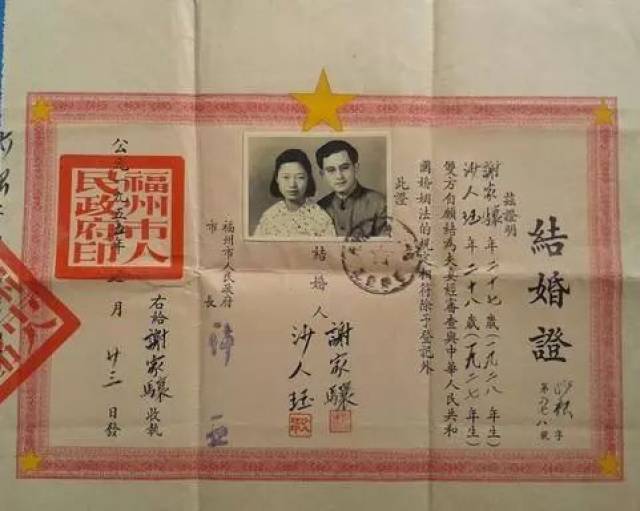 結婚證
字
第 八 號
茲證明
謝家驤 年二十七歲(一九二八年生)
沙人珏 年二十八歲(一九二七年生)
雙方自願結為夫妻經審查與中華人民共和
國婚姻法的規定相符除予登記外
此證
結婚人
謝家驤
沙人珏
福州市人民政府
市長
右給謝家驤收執
公元一九五五年 月廿三日發
福州市人民政府印